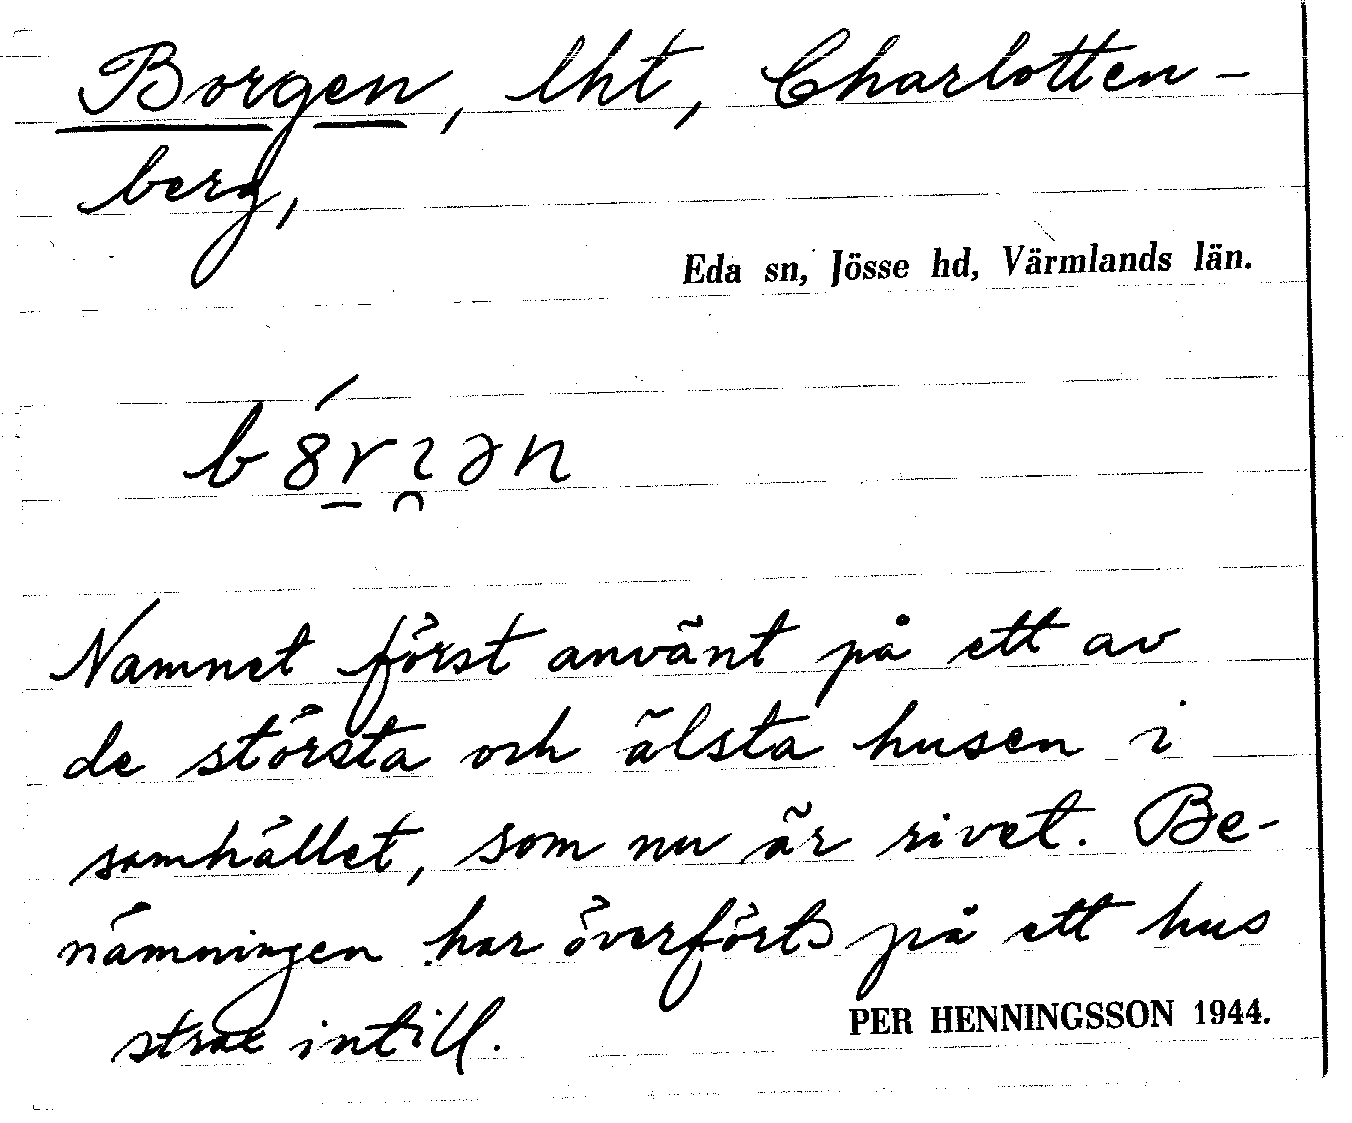 Borgen, lht, Charlotten-
berg,
Eda sn, Jösse hd, Värmlands län.
Namnet först använt på ett av
de största och älsta husen i
samhället, som nu är rivet. Be-
nämningen har överförts på ett hus
strax intill.
PER HENNINGSSON 1944.